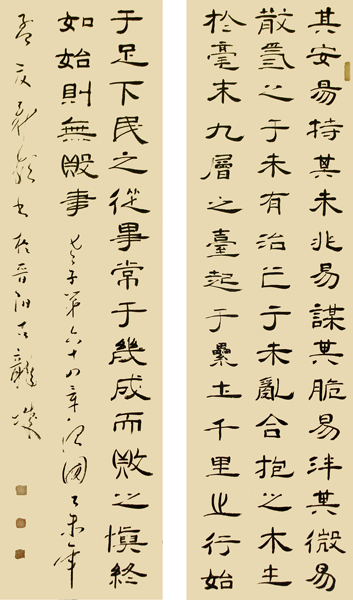 其安易持其未兆易謀其脆易泮其微易
散爲之于未有治之于未亂合抱之木生
於毫末九層之臺起于纍土千里之行始
于足下民之從事常于幾成而敗之慎終
如始則無敗事 老子第六十四章 乙未年
孟夏 書於晉陽古龍城